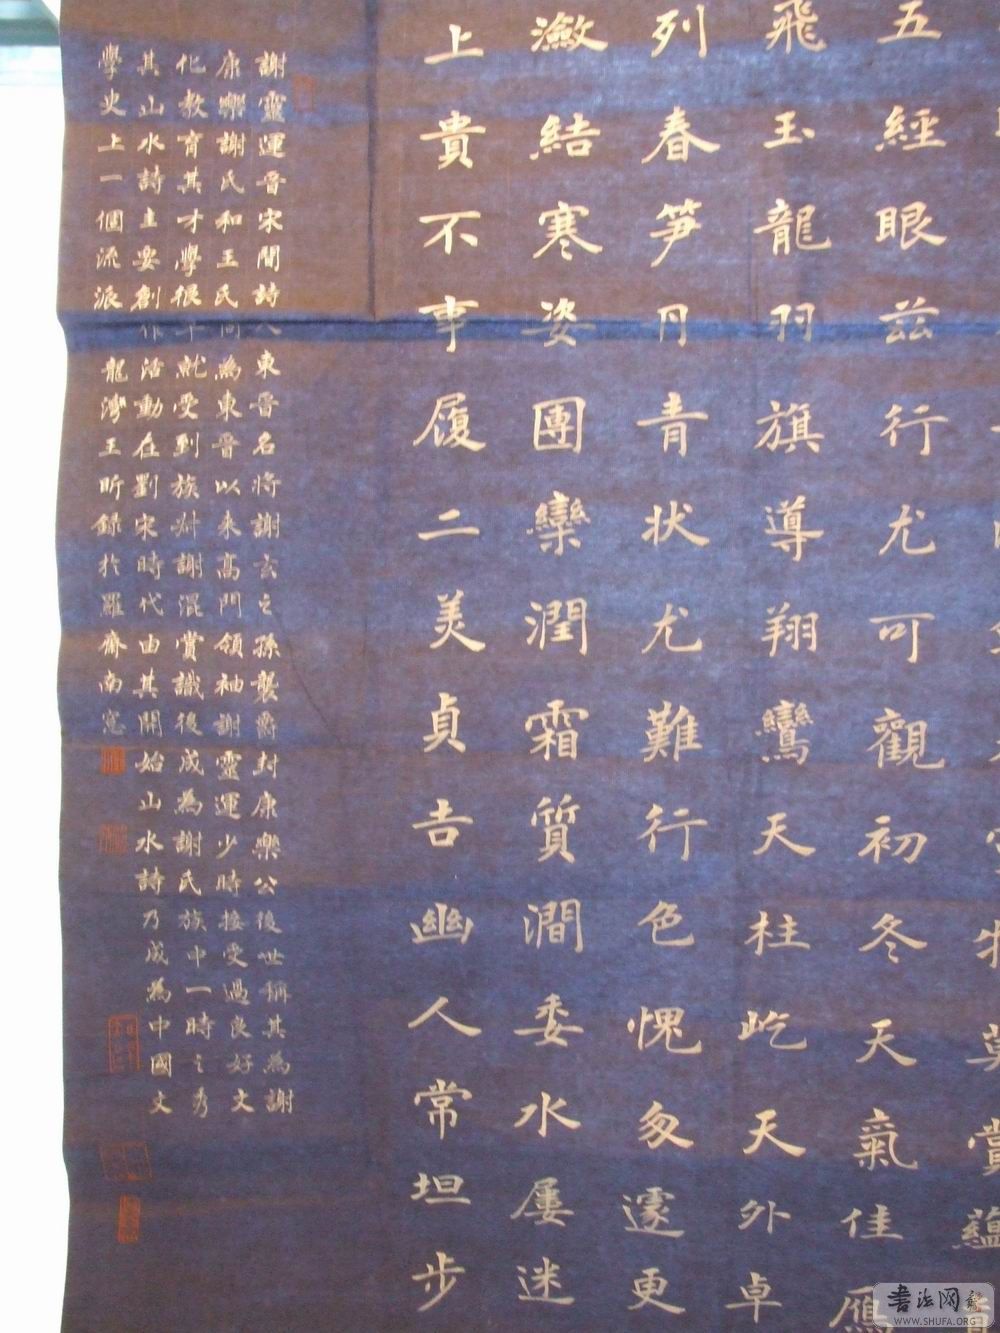 物莫賞蘊
五經眼茲行尤可觀初冬天氣佳雁
飛玉龍羽旗導翔鸞天柱屹天外卓
列春笋丹青状尤難行色愧匆遽更
瀲結寒姿團欒潤霜質澗委水屢迷
上貴不事履二美貞吉幽人常坦步
謝靈運晉宋間詩人東晉名將謝玄之孫襲爵封康樂公後世稱其為謝
康樂謝氏和王氏同為東晉以來高門領袖謝靈運少時接受過良好文
化教育其才學很早就受到族叔謝混賞識後成為謝氏族中一時之秀
其山水詩主要創作活動在劉宋時代由其開始山水詩乃成為中國文
學史上一個流派 龍灣王昕録於羅齋南窓
书法网
WWW.SHUFA.ORG